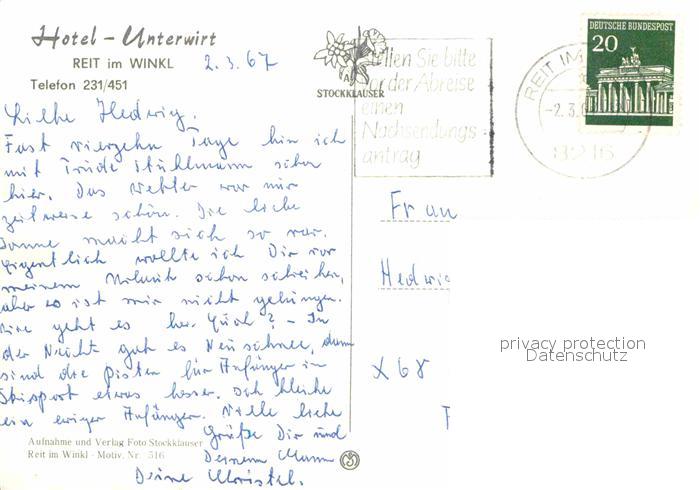 Hotel - Unterwirt
REIT im WINKL 2.3.67
Telefon 231/451
STOCKKLAUSER
Füllen Sie bitte
vor der Abreise
einen
Nachsendungs-
antrag
REIT IM
-2.3.
8216
DEUTSCHE BUNDESPOST
20
Liebe Hedwig.
Fast vierzehn Tage bin ich
mit Trude Stuhlmann schon
hier. Das Wetter war nur
zeitweise schön. Die liebe
Sonne macht sich so rar.
Eigentlich wollte ich Dir vor
meinem Urlaub schon schreiben,
aber es ist mir nicht gelungen.
Wie geht es bei Euch? - In
der Nacht gab es Neuschnee, dann
sind die Pisten für Anfänger im
Skisport etwas besser. Ich bleibe
ein ewiger Anfänger. Viele liebe
Grüße Dir und
Deinem Mann
Deine Christel.
Aufnahme und Verlag Foto Stockklauser
Reit im Winkl - Motiv. Nr. 516
Frau
Hedwig
X 68
privacy protection
Datenschutz